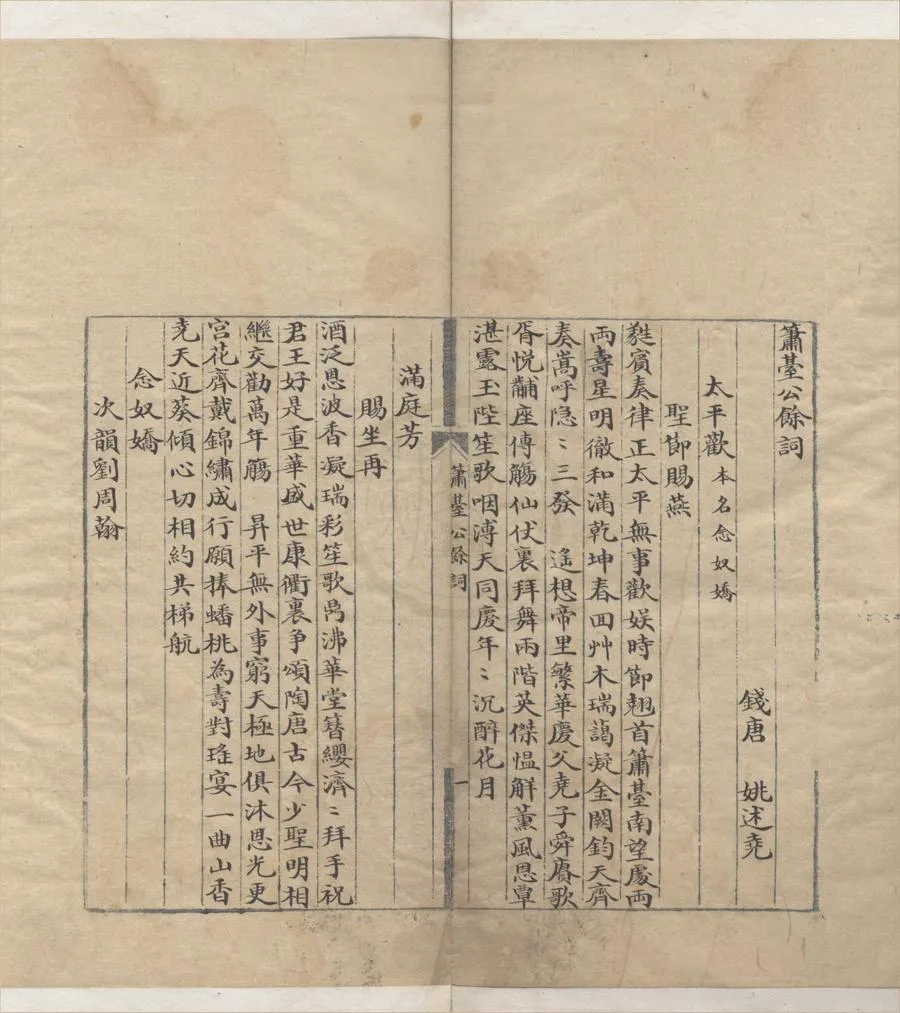 簫臺公餘詞
錢唐 姚述堯
太平歡本名念奴嬌
聖節賜燕
蕤賓奏律正太平無事歡娱時節翘首簫臺南望處両
両壽星明徹和滿乾坤春回艸木瑞藹凝金闕鈞天齊
奏嵩呼隐〻三發 遥想帝里繁華慶父堯子舜賡歌
胥悦黼座傳觴仙伏裏拜舞兩階英傑愠解薰風恩覃
湛露玉陛笙歌咽溥天同慶年〻沉醉花月
簫臺公餘詞
一
滿庭芳
賜坐再
酒泛恩波香凝瑞彩笙歌鼎沸華堂簪纓濟〻拜手祝
君王好是重華盛世康衢裏争頌陶唐古今少聖明相
繼交勸萬年觴 昇平無外事窮天極地俱沐恩光更
宫花齊戴錦繡成行願捧蟠桃為壽對瑤宴一曲山香
堯天近葵傾心切相約共梯航
念奴嬌
次韻劉周翰